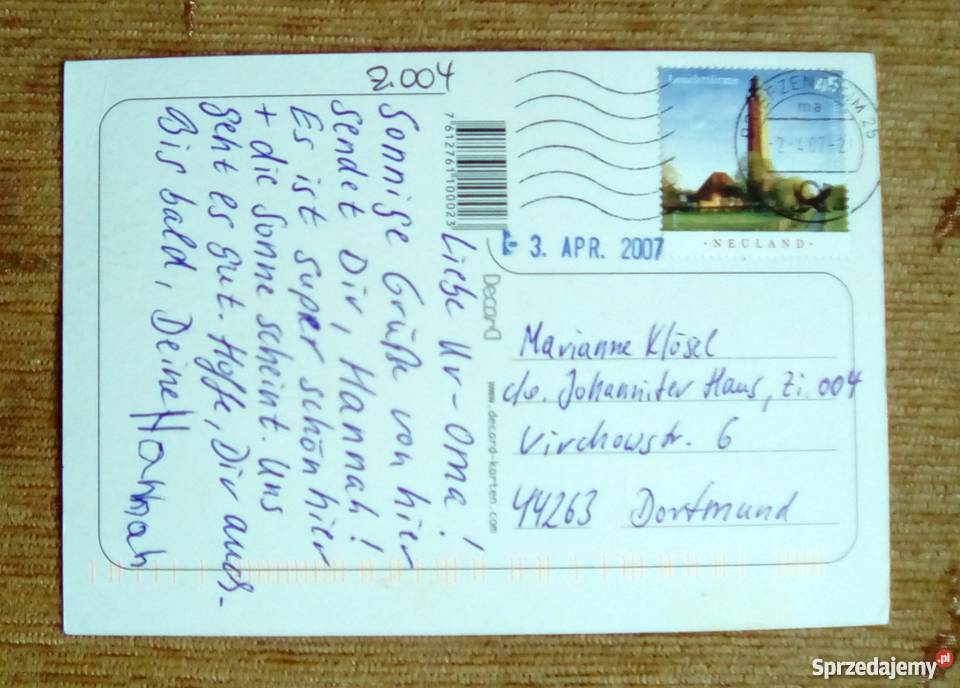 2.004
Liebe Ur-Oma!
Sonnige Grüße von hier
sendet Dir, Hannah!
Es ist super schön hier
+ die Sonne scheint. Uns
geht es gut. Hoffe, Dir auch.
Bis bald, Deine Hannah
7612761100023
Decard
www.decard-karten.com
Leuchttürme
45
NEULAND
25
ma
-2-4.07-2
3. APR. 2007
Marianne Klösel
c/o. Johanniter Haus, Zi. 004
Virchowstr. 6
44263 Dortmund
Sprzedajemy.pl